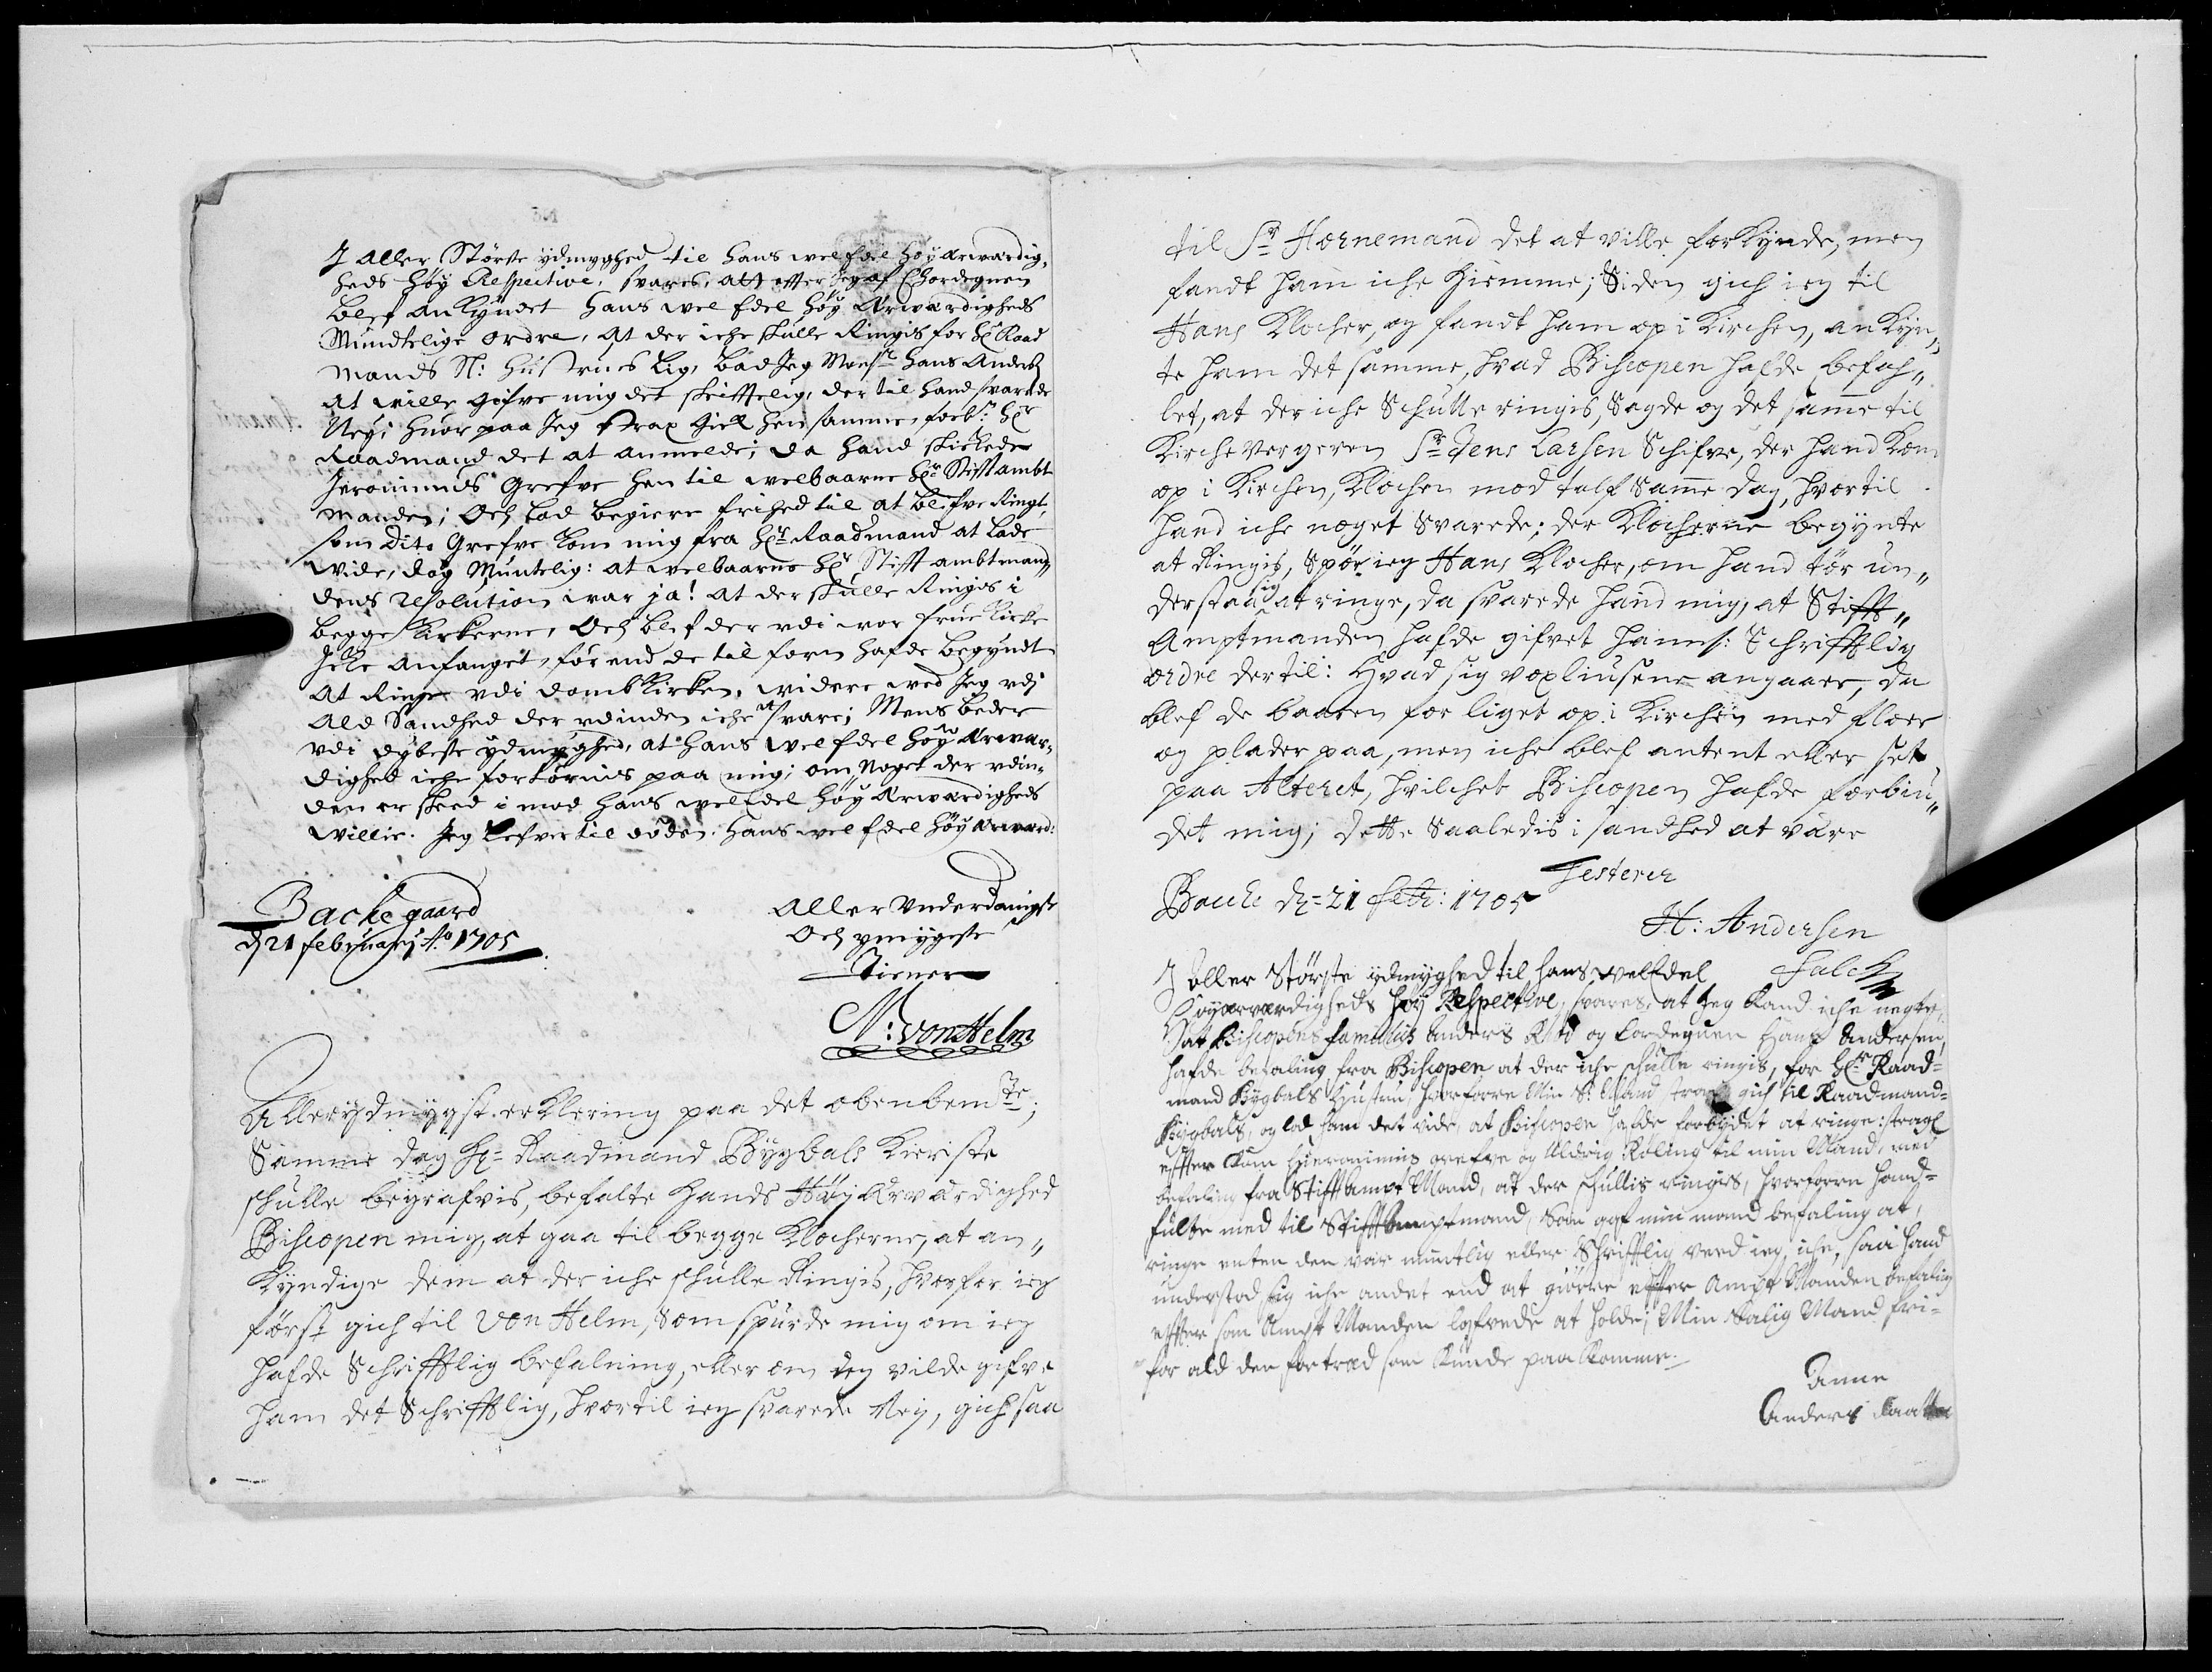 I aller Störste ydmyghed til hans wel Edel höyærwærdig,
heds höy Respective, svares, att effter Jeg af Chordegnen
blef ankÿndet hans wel Edel höÿ Ærwærdigheds
Mundtelige ordre, at der iche skulle Ringis for Hr Raad
mands N: hustrues lig, bad Jeg Monsr Hans Anders
at wille gifve mig det skrifftelig, der til hand svarede
Neÿ; huor paa Jeg strax gick hen samme forb: Hr
Raadmand det at anmelde; da hand skickede
Jeronimus Grefve hen til welbaarne Hr Stifftambt
manden; Och lod begiere frihed til at blefve Ringt,
som dito Grefve kom mig fra Hr Raadmand at lade
wide, dog Muntelig: at welbaarne Hr Stifftambtman„
dens resolution war ja! at der skulle Ringis i
begge Kirkerne, Och blef der vdi wor frue Kirke
Icke anfanget, før end de til forn hafde begyndt
at Ringe vdi dombKirken, widere wed Jeg vdj
ald Sandhed der vdinden iche at svare; Mens beder
vdi dybeste ydmyghed, at hans wel Edel höy Ærwær„
dighed iche fortørnis paa mig; om noget der vdin„
den er skeed i mod hans wel Edel höy Ærwærdigheds
willie. Jeg lefver til döden. hans wel Edel höy Ærwærd:
Backegaard
d 21 februarj Ao 1705
Aller Vnderdanigste
Och ymÿgeste
Tiener
N: von Helm
Allerÿdmÿgst erklering paa det obenbemte;
Samme dag Hr Raadmand Bÿgbals Kieriste
skulle begrafvis, befalte Hands Höÿ Ærværdighed
Biscopen mig, at gaa til begge Klocherne, at an„
kÿndige dem at der iche skulle Ringis, hvorfor ieg
først gich til Von Helm, som spurde mig om ieg
hafde Schrifftlig befalning, eller om ieg vilde gifve
ham det Schrifftlig, hvortil ieg svarede Neÿ, gich saa
til Sr Hornemand det at ville forkÿnde, men
fandt ham iche hiemme; Siden gich ieg til
Hans Klocher, og fandt ham op i Kirchen, ankÿn„
te ham det samme, hvad Biscopen hafde befah„
let, at der iche Schulle ringis, Sagde og det same til
Kircheværgeren Sr Jens Larsen Schifve, der hand kom
op i Kirchen, Klochen mod tolf Same dag, hvortil
hand iche noget Svarede; der Klocherne begÿnte
at Ringis, Spör ieg Hans Klocher, om hand tör un„
derstaa sig at ringe, da svarede hand mig, at Stifft„
Amptmanden hafde gifvet ham: Schrifftlig
ordre dertil: Hvad sig voxliusene angaaer, da
blef de baaren for liget op i Kirchen med floer
og plader paa, men iche blef antent eller sett
paa Alteret, hvilchet Biscopen hafde forbiu„
det mig; dette Saaledis i sandhed at være
Testerer
Bacche d: 21 Febr: 1705
H: Andersen
Falch
I aller Störste ydmyghed til hans wel Edel
Höyærværdigheds höy Respective, svares at Jeg kand iche negte,
at Biscopens famulus Anders og Cordegnen Hans Andersen,
hafde befaling fra Biscopen at der iche skulle ringis, for Hr Raad=
mand Bygbals Hustru, hvorforre Min S: Mand strax gich til Raadmand=
Bygbals, og lod ham det vide, at Biscopen hafde forbydet at ringe: strax
effter kom Hieronimus Grefve og Ulderig Röling til min Mand, med
befaling fra Stifft Ampt Mand, at der skulle ringis, hvorforre hand=
fulte med til Stifft Amptmand, Som gaf min mand befaling at,
ringe enten den var mundtlig eller Schrifftlig veed ieg, iche, saa hand
understod sig iche andet end at giörre effter Ampt Manden befaling
effter som Ampt Manden lofvede at holde; Min Salig Mand fri=
for ald den fortræd som kunde paa komme.
Anne
Anders